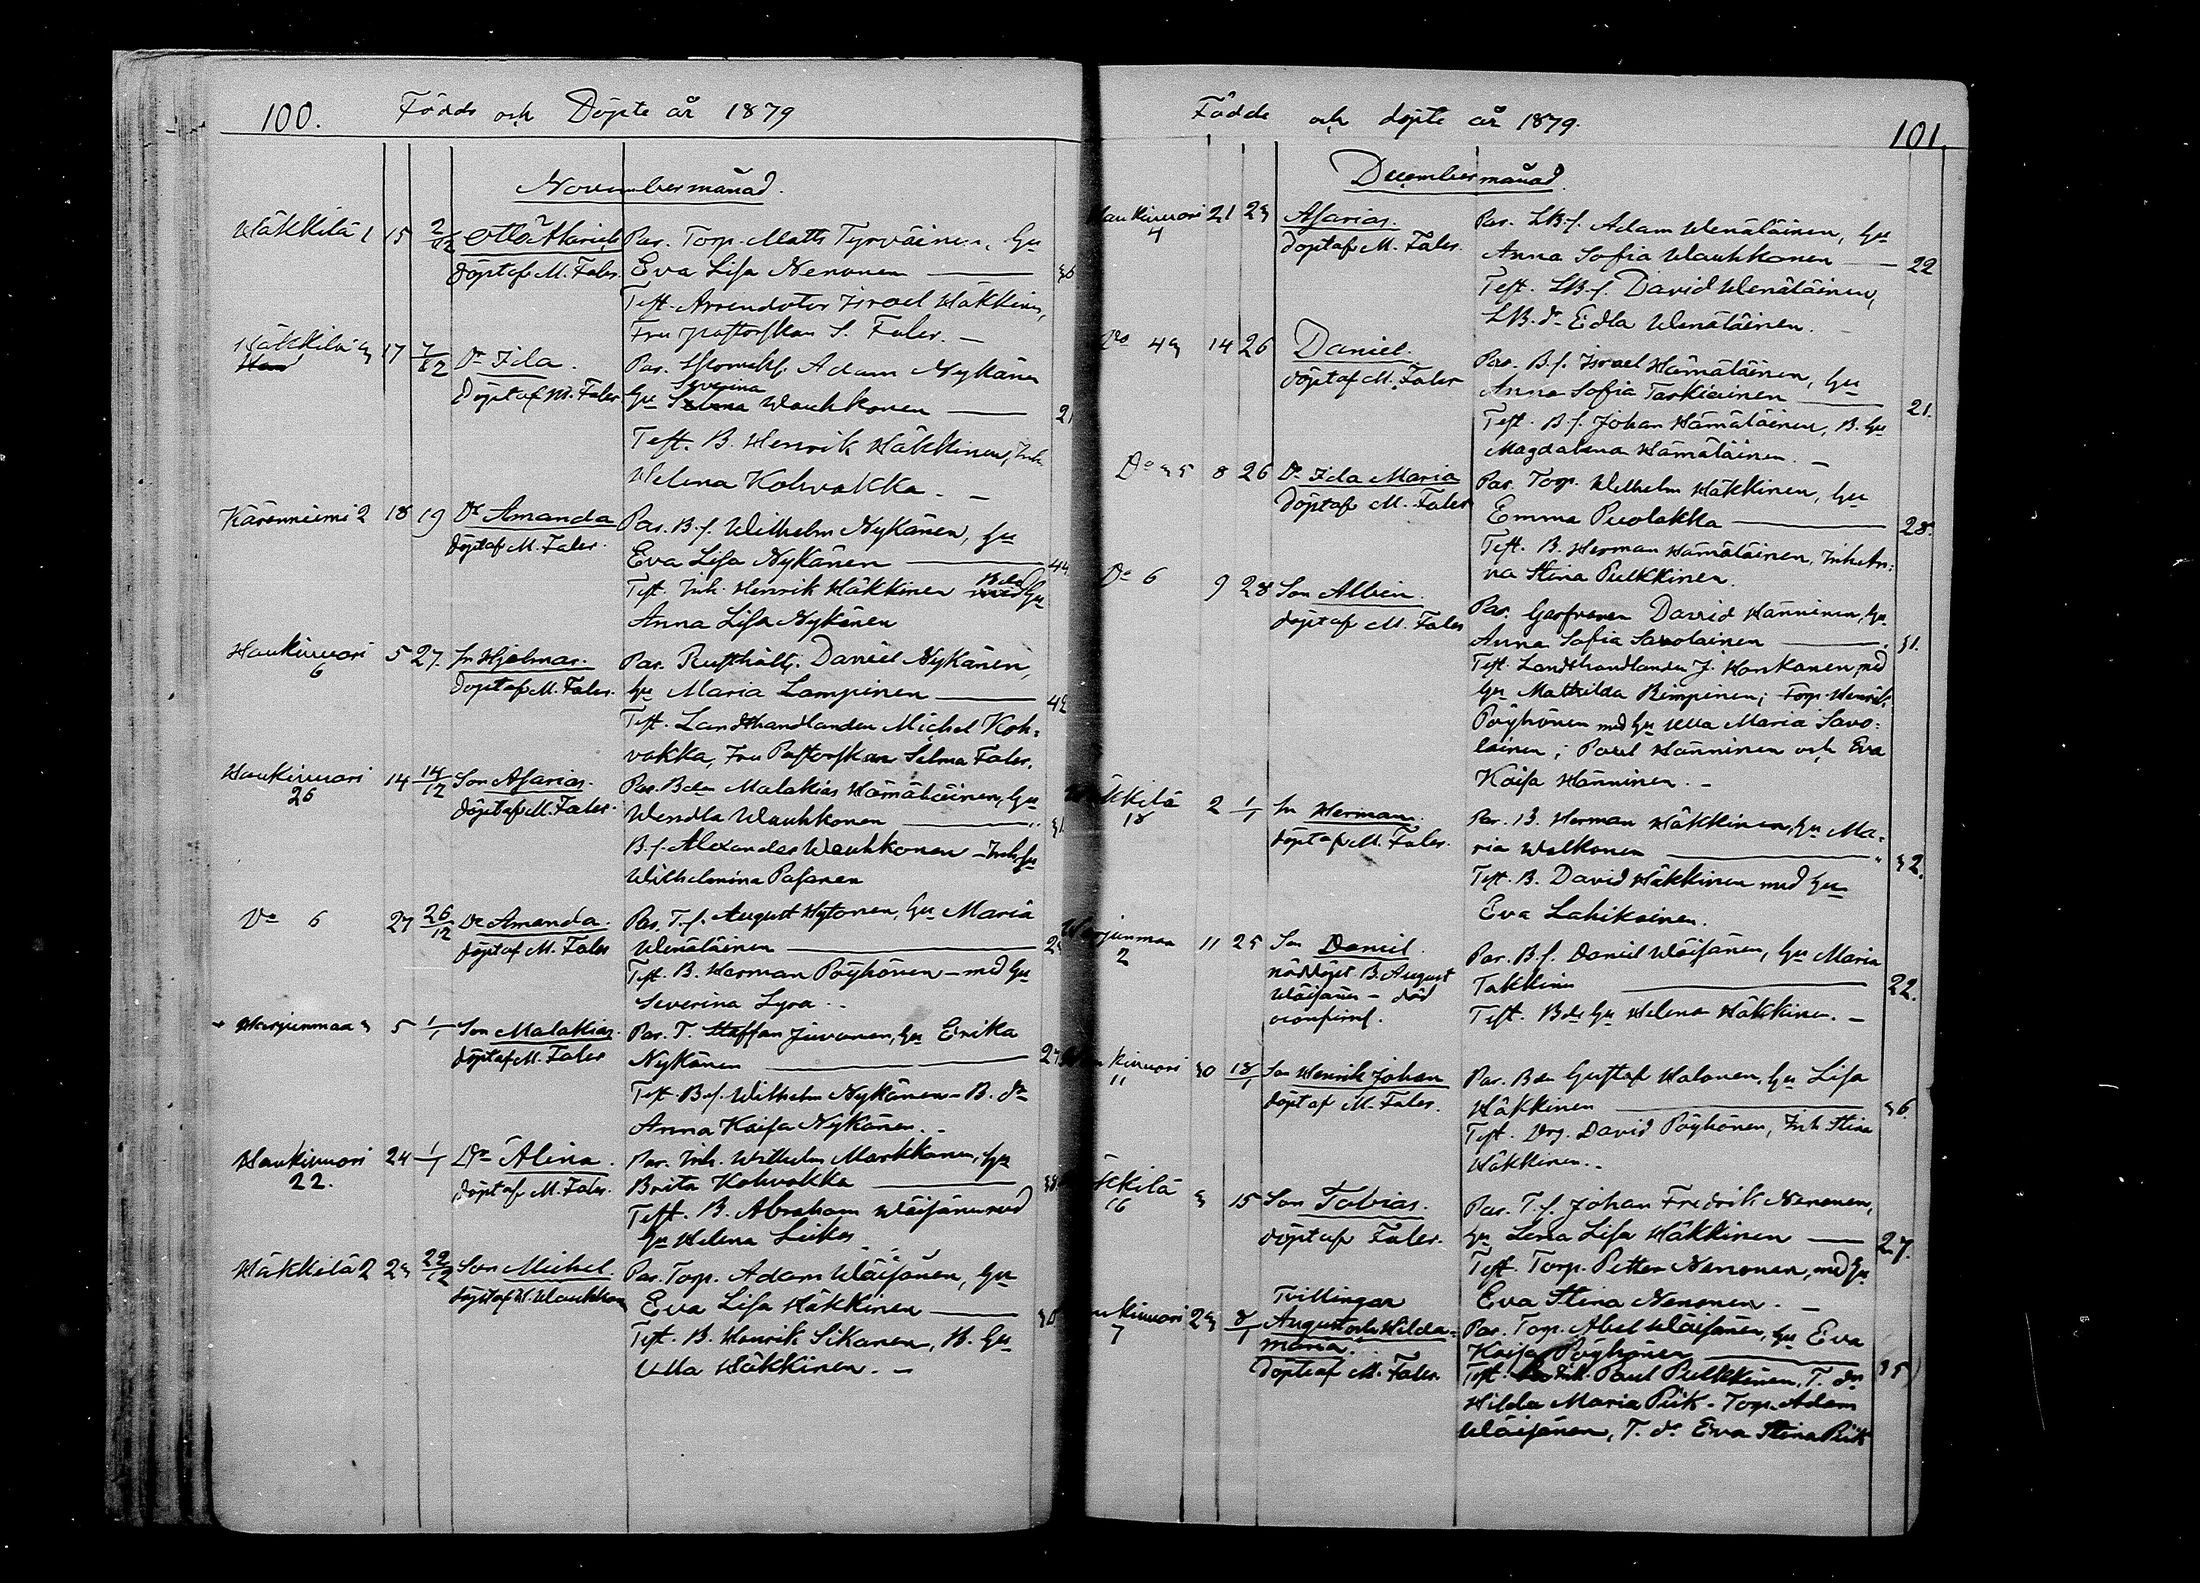 100. Födde och Döpte år 1879
Novembermånad.
Häkkilä 1 15 2/12 Otto Hariel Par. Torp. Matts Tyrväinen, hu
döpt af M. Faler. Eva Lisa Nenonen
Test. Arrendator Israel Häkkinen,
Fru pastorskan S. Faler. —
Häkkilä 3 17 7/12 Dr Ida. Par. Adam Nykänen
döpt af M. Faler hu Severina Wauhkonen — 21
Test. B. Henrik Häkkinen, Inh.
Helena Kohvakka. —
Kärenniemi 2 18 19 Dr Amanda Par. B.f. Wilhelm Nykänen, hu
döpt af M. Faler. Eva Lisa Nykänen — 44
Test. Inh. Henrik Häkkinen hu
Anna Lisa Nykänen
Haukivuori 5 27. Sn Hjalmar. Par. Rusthåll. Daniel Nykänen,
6 döpt af M. Faler. hu Maria Lampinen — 42
Test. Landthandlanden Michel Koh-
vakka, Fru Pastorskan Selma Faler.
Haukivuori 14 14/12 Son Asarias. Par. Bden Malakias Hämäläinen, hu
26 döpt af M. Faler. Wendla Wauhkonen
B.f. Alexander Wauhkonen – Inh. hu
Wilhelmina Pasanen
Do 6 27 26/12 Dr Amanda. Par. T.f. August Hytönen, hu Maria
döpt af M. Faler Wenäläinen
Test. B. Herman Pöyhönen – med hu
Severina Lyra. –
Harjunmaa 3 5 1/1 Son Malakias. Par. T. Staffan Juvonen, hu Erika
döpt af M. Faler Nykänen — 27
Test. B.f. Wilhelm Nykänen – B. dr
Anna Kaisa Nykänen. –
Haukivuori 24 1/1 Dr Alina. Par. Inh. Wilhelm Markkanen, hu
22. döpt af M. Faler. Brita Kohvakka
Test. B. Abraham Wäisänen med
hu Helena Leika
Häkkilä 2 23 29/12 Son Michel. Par. Torp. Adam Wäisänen, hu
döpt af H. Wauhkonen Eva Lisa Häkkinen — 30
Test. B. Henrik Sikanen, B. hu
Ulla Häkkinen. –
Födde och döpte år 1879. 101.
Decembermånad.
Haukivuori 21 23 Asarias. Par. LB.f. Adam Wenäläinen, hu
4 döpt af M. Faler. Anna Sofia Wauhkonen — 22
Test. LB.f. David Wenäläinen,
LB. dr Edla Wenäläinen.
Do 43 14 26 Daniel. Par. B.f. Israel Hämäläinen, hu
döpt af M. Faler Anna Sofia Tarkiainen — 21.
Test. B.f. Johan Hämäläinen, B. hu
Magdalena Hämäläinen. –
Do 35 8 26 Dr Ida Maria Par. Torp. Wilhelm Häkkinen, hu
döpt af M. Faler Emma Puolakka — 28.
Test. B. Herman Hämäläinen, Inh. An-
na Stina Pulkkinen.
Do 6 9 28 Son Albin. Par. Garfvaren David Hänninen, hu
döpt af M. Faler Anna Sofia Savolainen — 31.
Test. Landthandlanden J. Hankanen med
hu Mathilda Rimpinen; Torp. Henrik
Pöyhönen med hu Ulla Maria Savo-
lainen; Paul Hänninen och Eva
Kaisa Hänninen. –
Häkkilä 2 1/1 Sn Herman. Par. B. Herman Häkkinen, hu Ma-
18 döpt af M. Faler. ria Walkonen — 32.
Test. B. David Häkkinen med hu
Eva Lahikainen.
Harjunmaa 11 25 Sn Daniel. Par. B.f. Daniel Wäisänen, hu Maria
2 nöddöpt B. August Takkinen — 22.
Wäisänen – död Test. Bde hu Helena Häkkinen. –
Haukivuori 30 18/1 Son Henrik Johan Par. Bden Gustaf Halonen, hu Lisa
11 döpt af M. Faler. Häkkinen — 36.
Test. David Pöyhönen, Inh. Stina
Häkkinen. –
Häkkilä 3 15 Son Tobias. Par. T.f. Johan Fredrik Nenonen,
16 döpt af Faler. hu Lena Lisa Häkkinen — 27.
Test. Torp. Petter Nenonen, med hu
Eva Stina Nenonen. –
Tvillingar
Haukivuori 23 8/1 August och Hilda Par. Torp. Abel Wäisänen, hu Eva
7 Maria. Kaisa Pöyhönen — 35
Döpte af M. Faler. Test. Inh. Paul Pulkkinen, T. dr
Hilda Maria Piik – Torp. Adam
Wäisänen, T. dr Eva Stina Piik